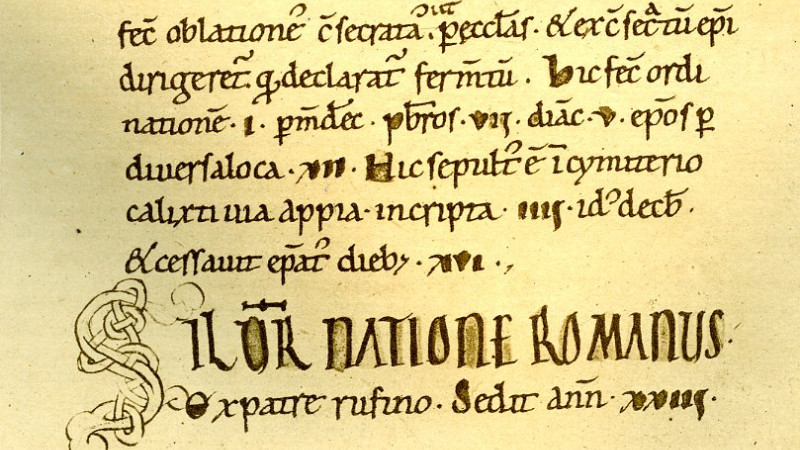 fec̄ oblationeˢ c̄secrataˢ . ꝑ eccl̄as . & ex c̄secͣtū ep̄i
dirigeret̄ . qđ declarat̄ ferm̄tū . Hic fec̄ ordi
natione᷒ . I . ꝑ m̄ dec̄ . pb̄ros . VII . diac̄ . V . ep̄os ꝑ
diuersa loca . XII . Hic sepult᷒ ē ī cymiterio
calixti uia appia . in cripta . IIII . id᷒ decb̄ .
& cessauit ep̄at᷒ dieb; . XVI .,
SILŪR NATIONE ROMANUS .
ex patre rufino . Sedit ann̄ . XXIII .